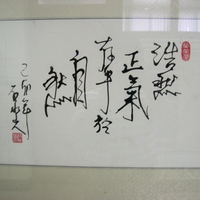 浩然
正氣
存乎於
自然
己卯年